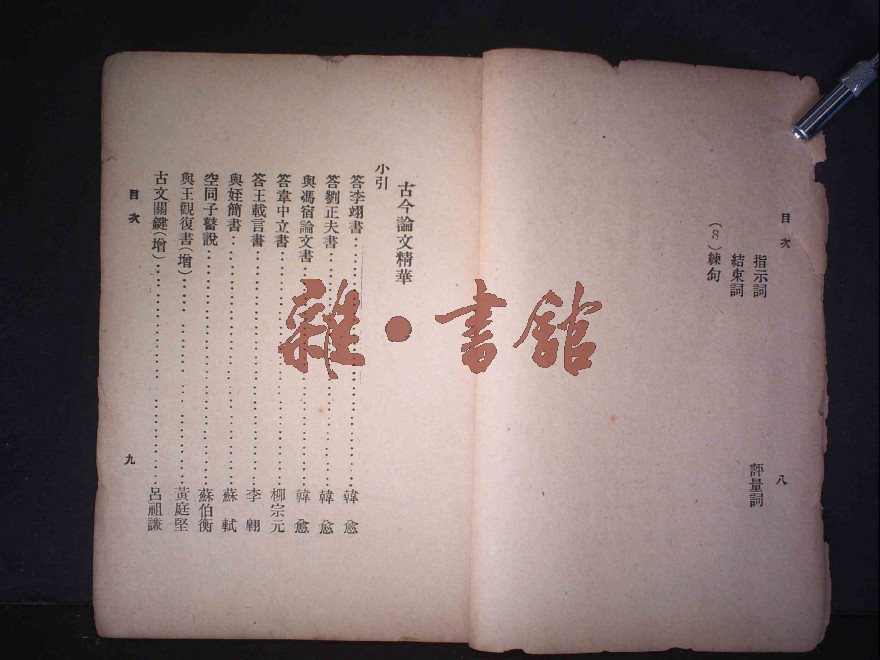 目次
指示詞 評量詞
結束詞
(8)練句
八
古今論文精華
小引
答李翊書 韓愈
答劉正夫書 韓愈
與馮宿論文書 韓愈
答韋中立書 柳宗元
答王載言書 李翱
與姪簡書 蘇軾
空同子瞽說 蘇伯衡
與王觀復書(增) 黃庭堅
古文關鍵(增) 呂祖謙
目次
九
雜•書館